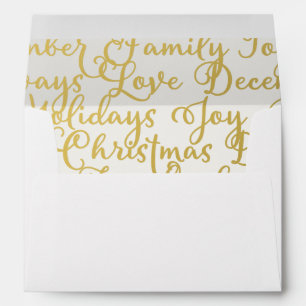 mber Family Jo
ays Love Decem
Holidays Joy
Christmas